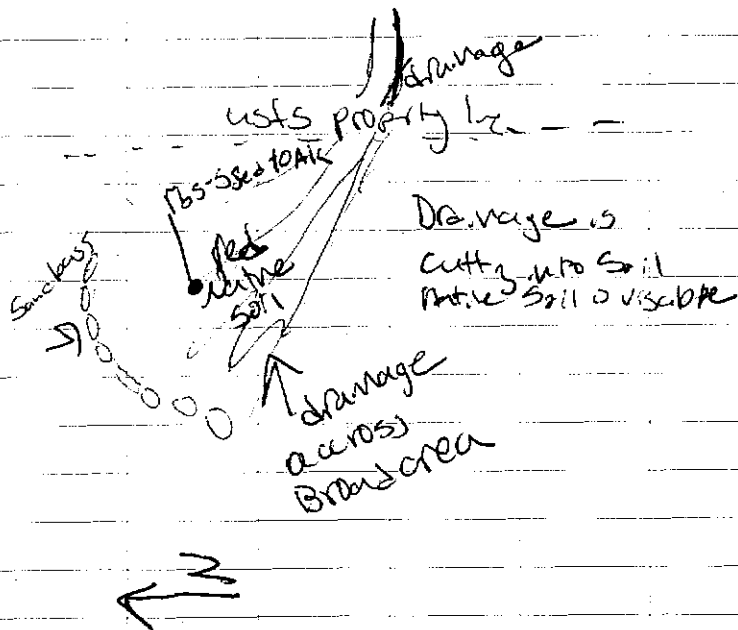 drainage
usfs property
Sandbags
Red
native
soil
Drainage is
cutting into Soil
native Soil is visible
drainage
across
Broad area
N